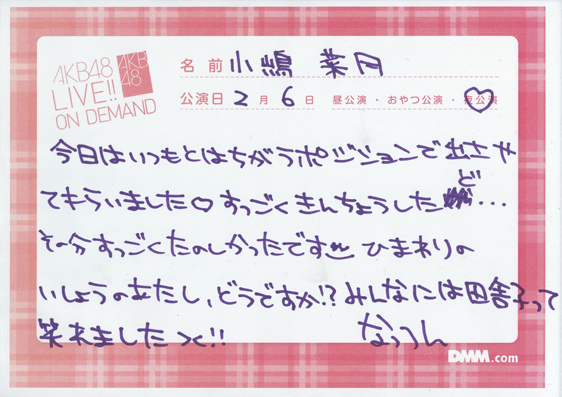 AKB48
LIVE!!
ON DEMAND
AKB
48
名 前 小嶋 菜月
公演日 2 月 6 日 昼公演・おやつ公演・夜公演
今日はいつもとはちがうポジションで出させ
てもらいました♡すっごくきんちょうしたど…
その分すっごくたのしかったです ひまわりの
いしょうのあたし、どうですか!?みんなには田舎子って
笑れましたつく!!
なっつん
DMM.com